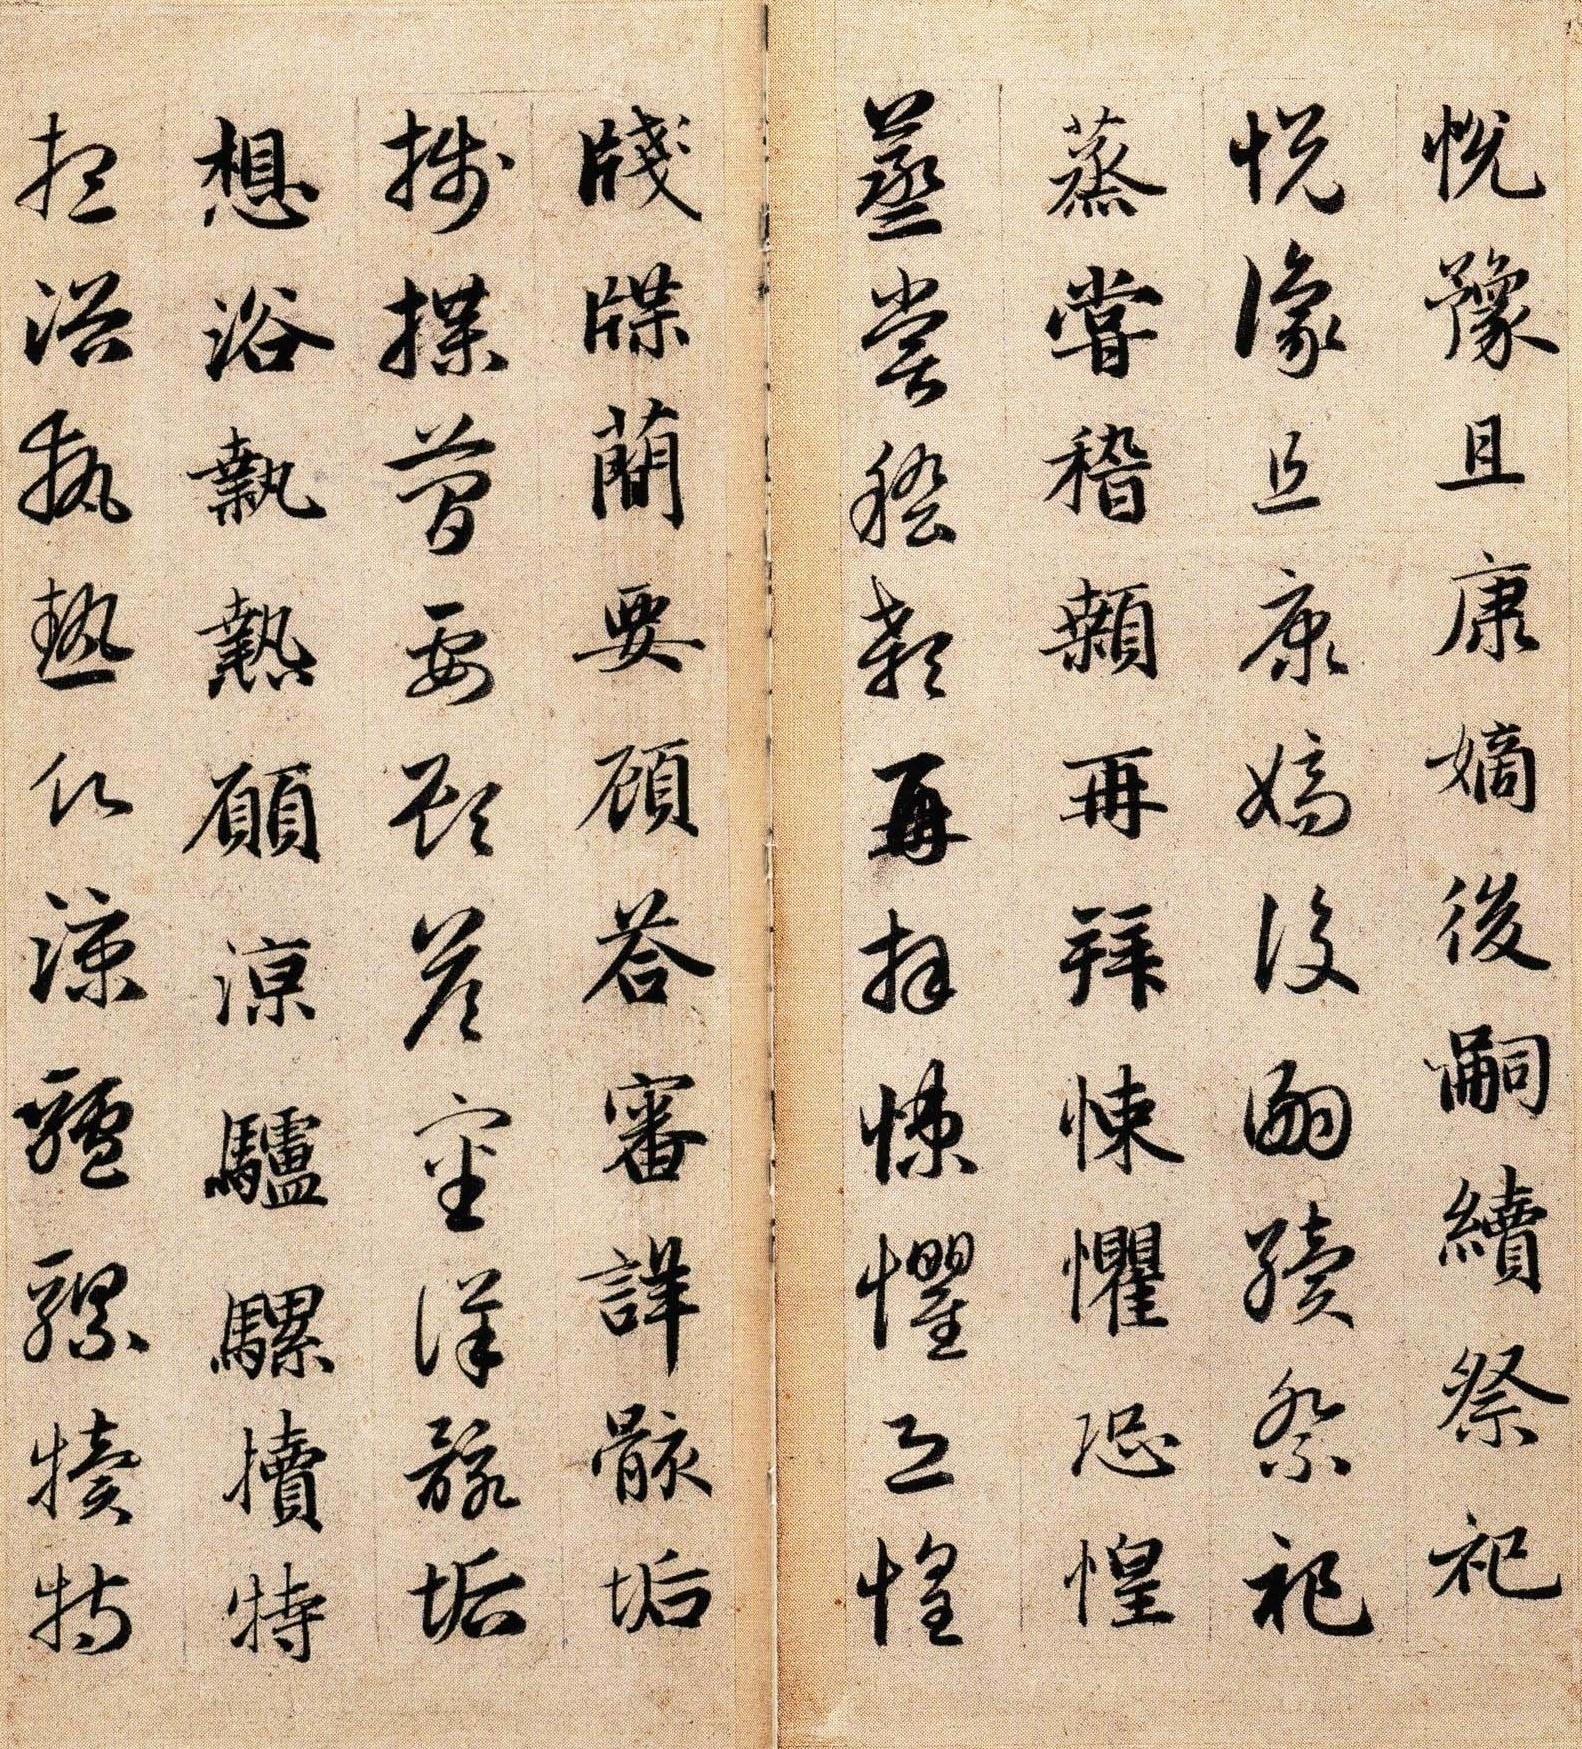 悦豫且康嫡後嗣續祭祀
悦豫且康嫡後嗣續祭祀
蒸嘗稽顙再拜悚懼恐惶
蒸嘗稽顙再拜悚懼恐惶
牋牒蕳要顧荅審詳骸垢
牋牒蕳要顧荅審詳骸垢
想浴執熱願凉驢騾犢特
想浴執熱願凉驢騾犢特